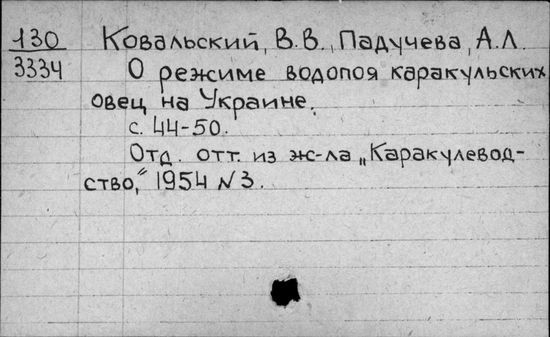 130 Ковальский, В.В., Падучева, А.Л.
3334 О режиме водопоя каракульских
овец на Украине.
с. 44-50.
Отд. отт. из ж-ла „Каракулевод-
ство,“ 1954 N 3.